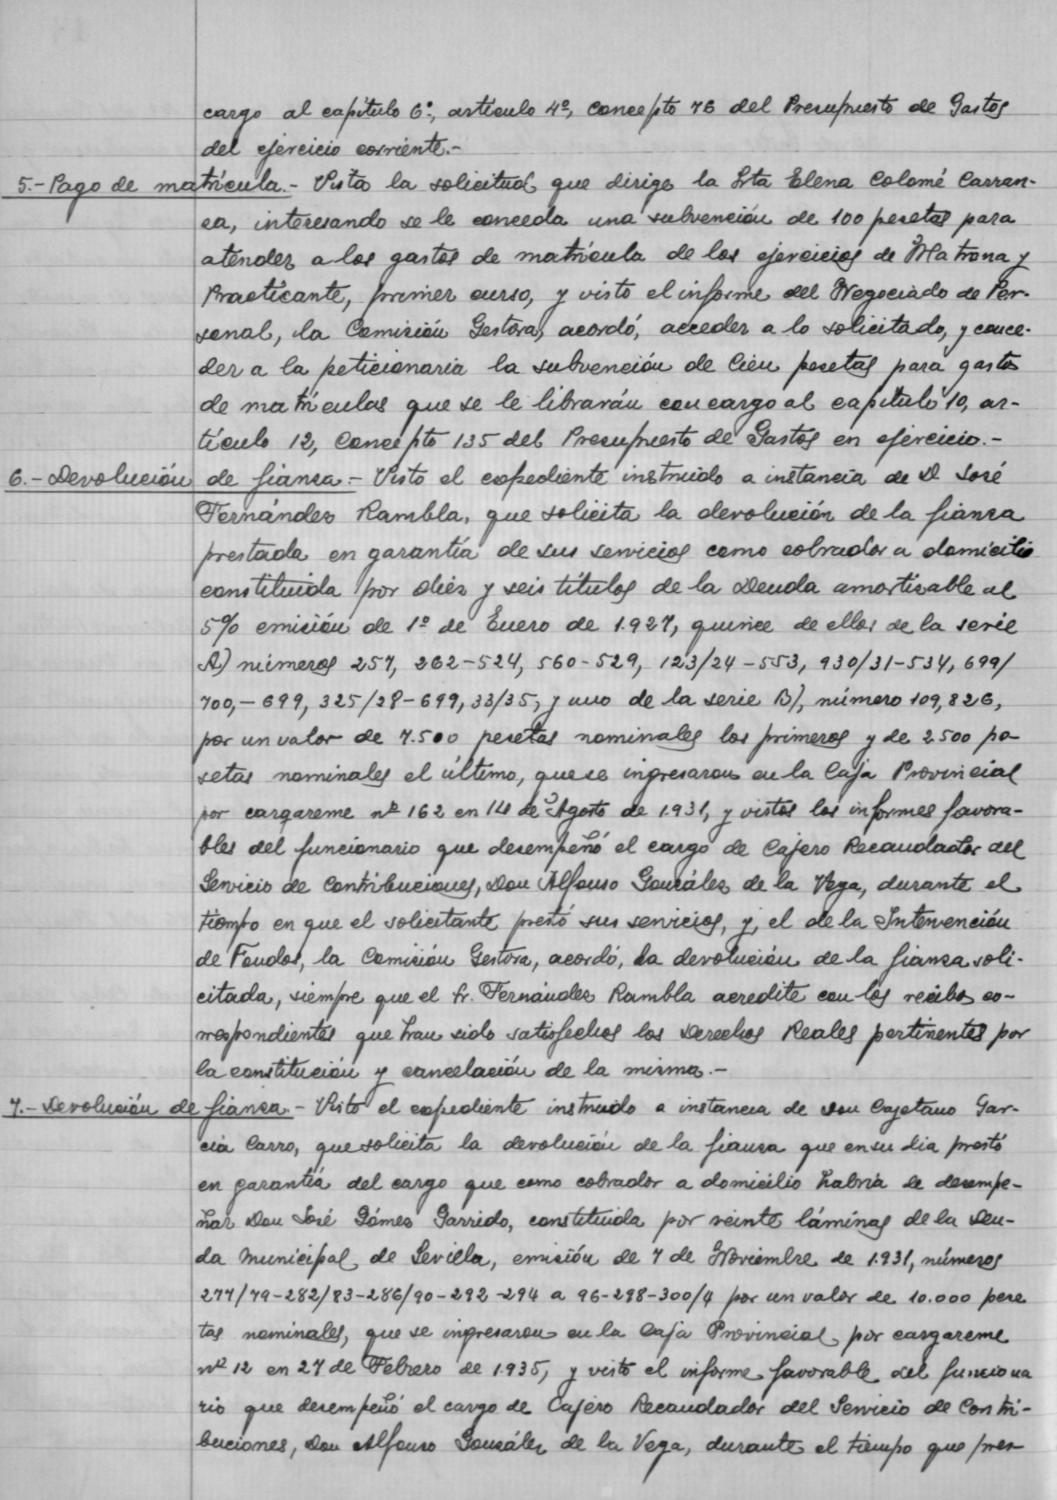 cargo al capítulo 6º, artículo 4º, Concepto 76 del Presupuesto de Gastos
del ejercicio corriente.-
5.- Pago de matrícula.- Vista la solicitud que dirige la Srta Elena Colomé Carran-
ca, interesando se le conceda una subvención de 100 pesetas para
atender a los gastos de matrícula de los ejercicios de Matrona y
Practicante, primer curso, y visto el informe del Negociado de Per-
sonal, la Comisión Gestora, acordó, acceder a lo solicitado, y conce-
der a la peticionaria la subvención de Cien pesetas para gastos
de matrículas que se le librarán con cargo al capítulo 10, ar-
tículo 12, Concepto 135 del Presupuesto de Gastos en ejercicio.-
6.- Devolución de fianza.- Visto el expediente instruido a instancia de D José
Fernández Rambla, que solicita la devolución de la fianza
prestada en garantía de sus servicios como cobrador a domicilio
constituida por diez y seis títulos de la Deuda amortizable al
5% emisión de 1º de Enero de 1.927, quince de ellos de la serie
A) números 257, 262-524, 560-529, 123/24-553, 930/31-534, 699/
700,-699, 325/28-699, 33/35, y uno de la serie B), número 109,826,
por un valor de 7.500 pesetas nominales los primeros y de 2.500 pe-
setas nominales el último, que se ingresaron en la Caja Provincial
por cargareme nº 162 en 14 de Agosto de 1.931, y vistos los informes favora-
bles del funcionario que desempeñó el cargo de Cajero Recaudador del
Servicio de Contribuciones, Don Alfonso González de la Vega, durante el
tiempo en que el solicitante prestó sus servicios, y, el de la Intervención
de Fondos, la Comisión Gestora, acordó, la devolución de la fianza soli-
citada, siempre que el Sr. Fernández Rambla acredite con los recibos co-
rrespondientes que han sido satisfechos los Derechos Reales pertinentes por
la constitución y cancelación de la misma.-
7.- Devolución de fianza.- Visto el expediente instruido a instancia de Don Cayetano Gar-
cía Carro, que solicita la devolución de la fianza que en su día prestó
en garantía del cargo que como cobrador a domicilio habría de desempe-
ñar Don José Gómez Garrido, constituida por veinte láminas de la Deu-
da Municipal de Sevilla, emisión de 7 de Noviembre de 1.931, números
277/79-282/83-286/90-292-294 a 96-298-300/4 por un valor de 10.000 pese
tas nominales, que se ingresaron en la Caja Provincial por cargareme
nº 12 en 27 de Febrero de 1.935, y visto el informe favorable del funciona
rio que desempeñó el cargo de Cajero Recaudador del Servicio de Contri-
buciones, Don Alfonso González de la Vega, durante el tiempo que pres-